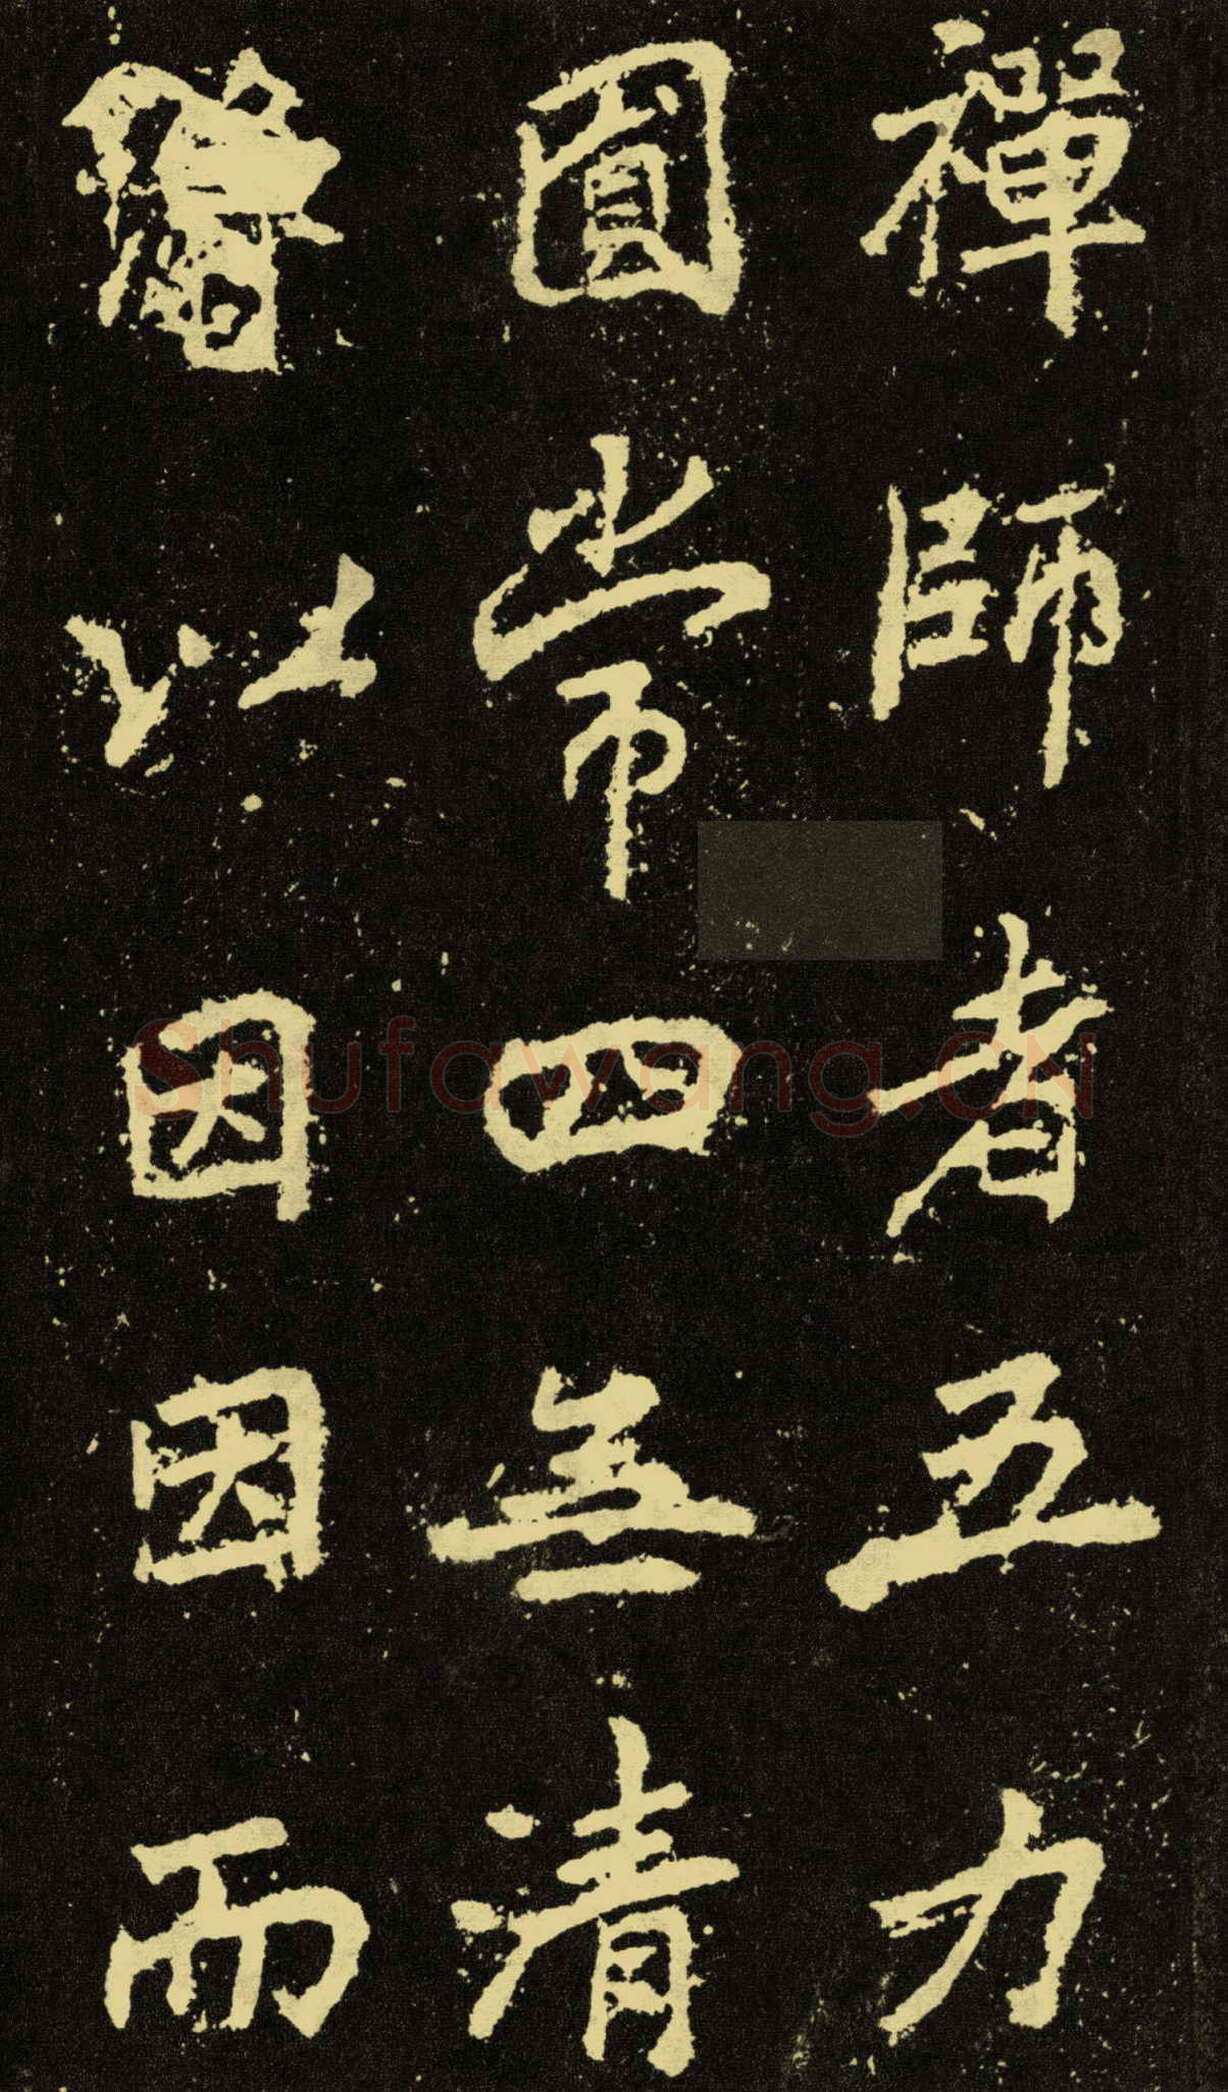 禪師者五力
圓常四無清
以因因而
Shufawang.CN